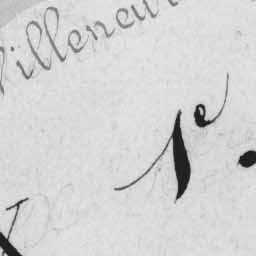 Villeneuv
1e.